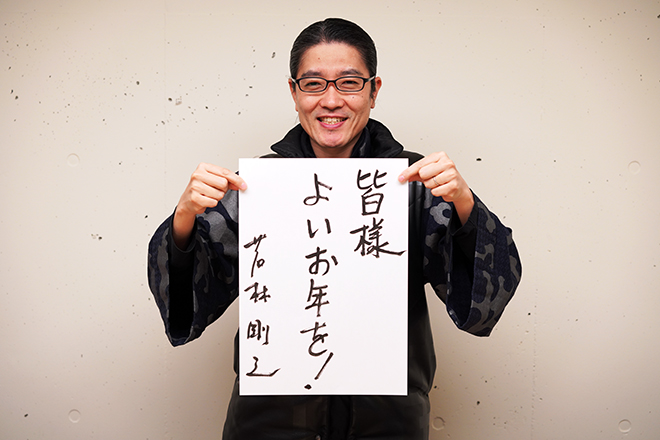 皆様
よいお年を!
若林剛之